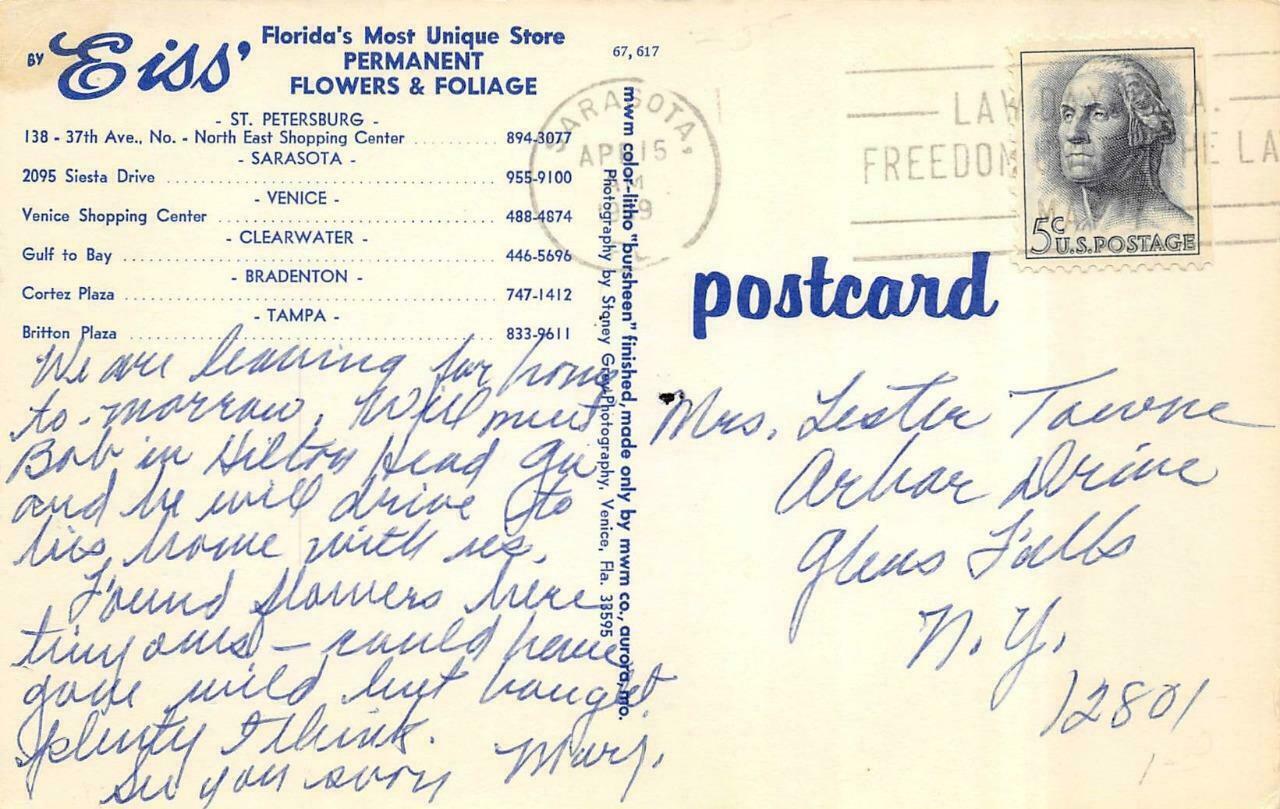 BY Eiss'
Florida's Most Unique Store
PERMANENT
FLOWERS & FOLIAGE
- ST. PETERSBURG -
138 - 37th Ave., No. - North East Shopping Center 894-3077
- SARASOTA -
2095 Siesta Drive 955-9100
- VENICE -
Venice Shopping Center 488-4874
- CLEARWATER -
Gulf to Bay 446-5696
- BRADENTON -
Cortez Plaza 747-1412
- TAMPA -
Britton Plaza 833-9611
We are leaving for home
to-morrow. Will meet
Bob in Hilton Head Ga
and he will drive to
his home with us.
Found flowers here
tiny ones - could have
gone wild but bought
plenty I think.
See you soon Marj.
67, 617
mwm color-litho "bursheen" finished, made only by mwm co., aurora, mo.
Photography by Stoney Grey Photography, Venice, Fla. 33595
SARASOTA,
APR 15
LAW DAY
FREEDOM THE LA
MA
5c U.S. POSTAGE
postcard
Mrs. Lester Towne
Arbor Drive
Glens Falls
N.Y.
12801